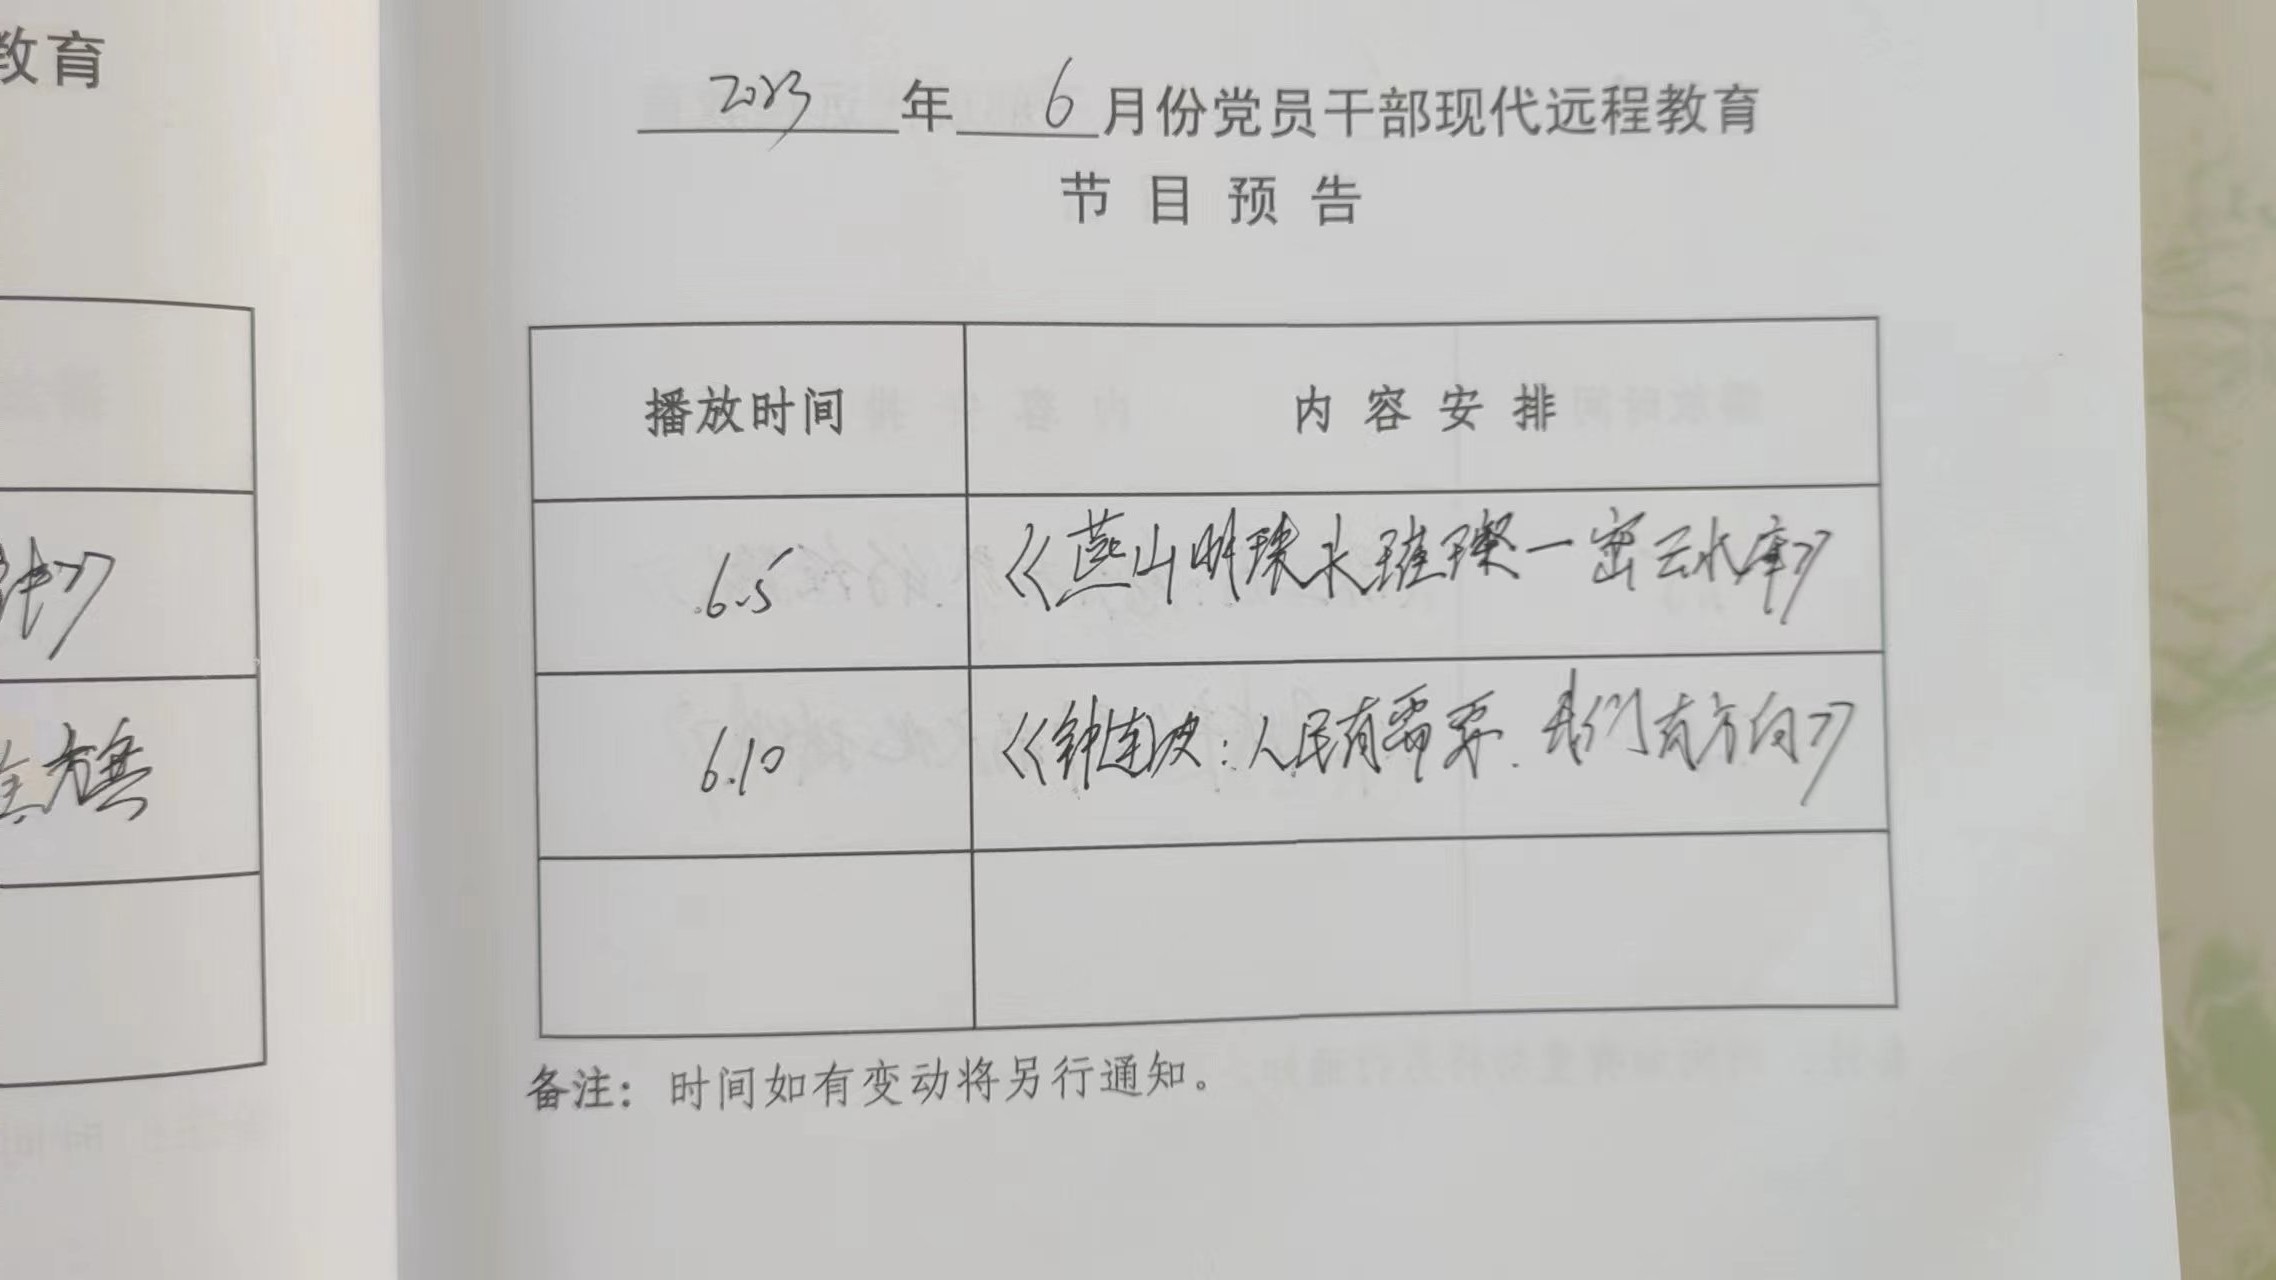 教育
2023年6月份党员干部现代远程教育
节目预告
播放时间 内容安排
6.5 《燕山明珠水璀璨一密云水库》
6.10 《钟连决:人民有需要.我们有方向》
备注：时间如有变动将另行通知。